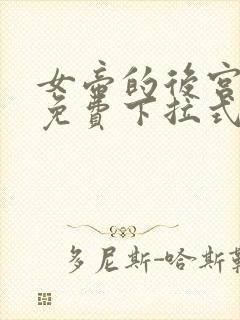 女帝的後宮
免費下拉式
多尼斯-哈斯